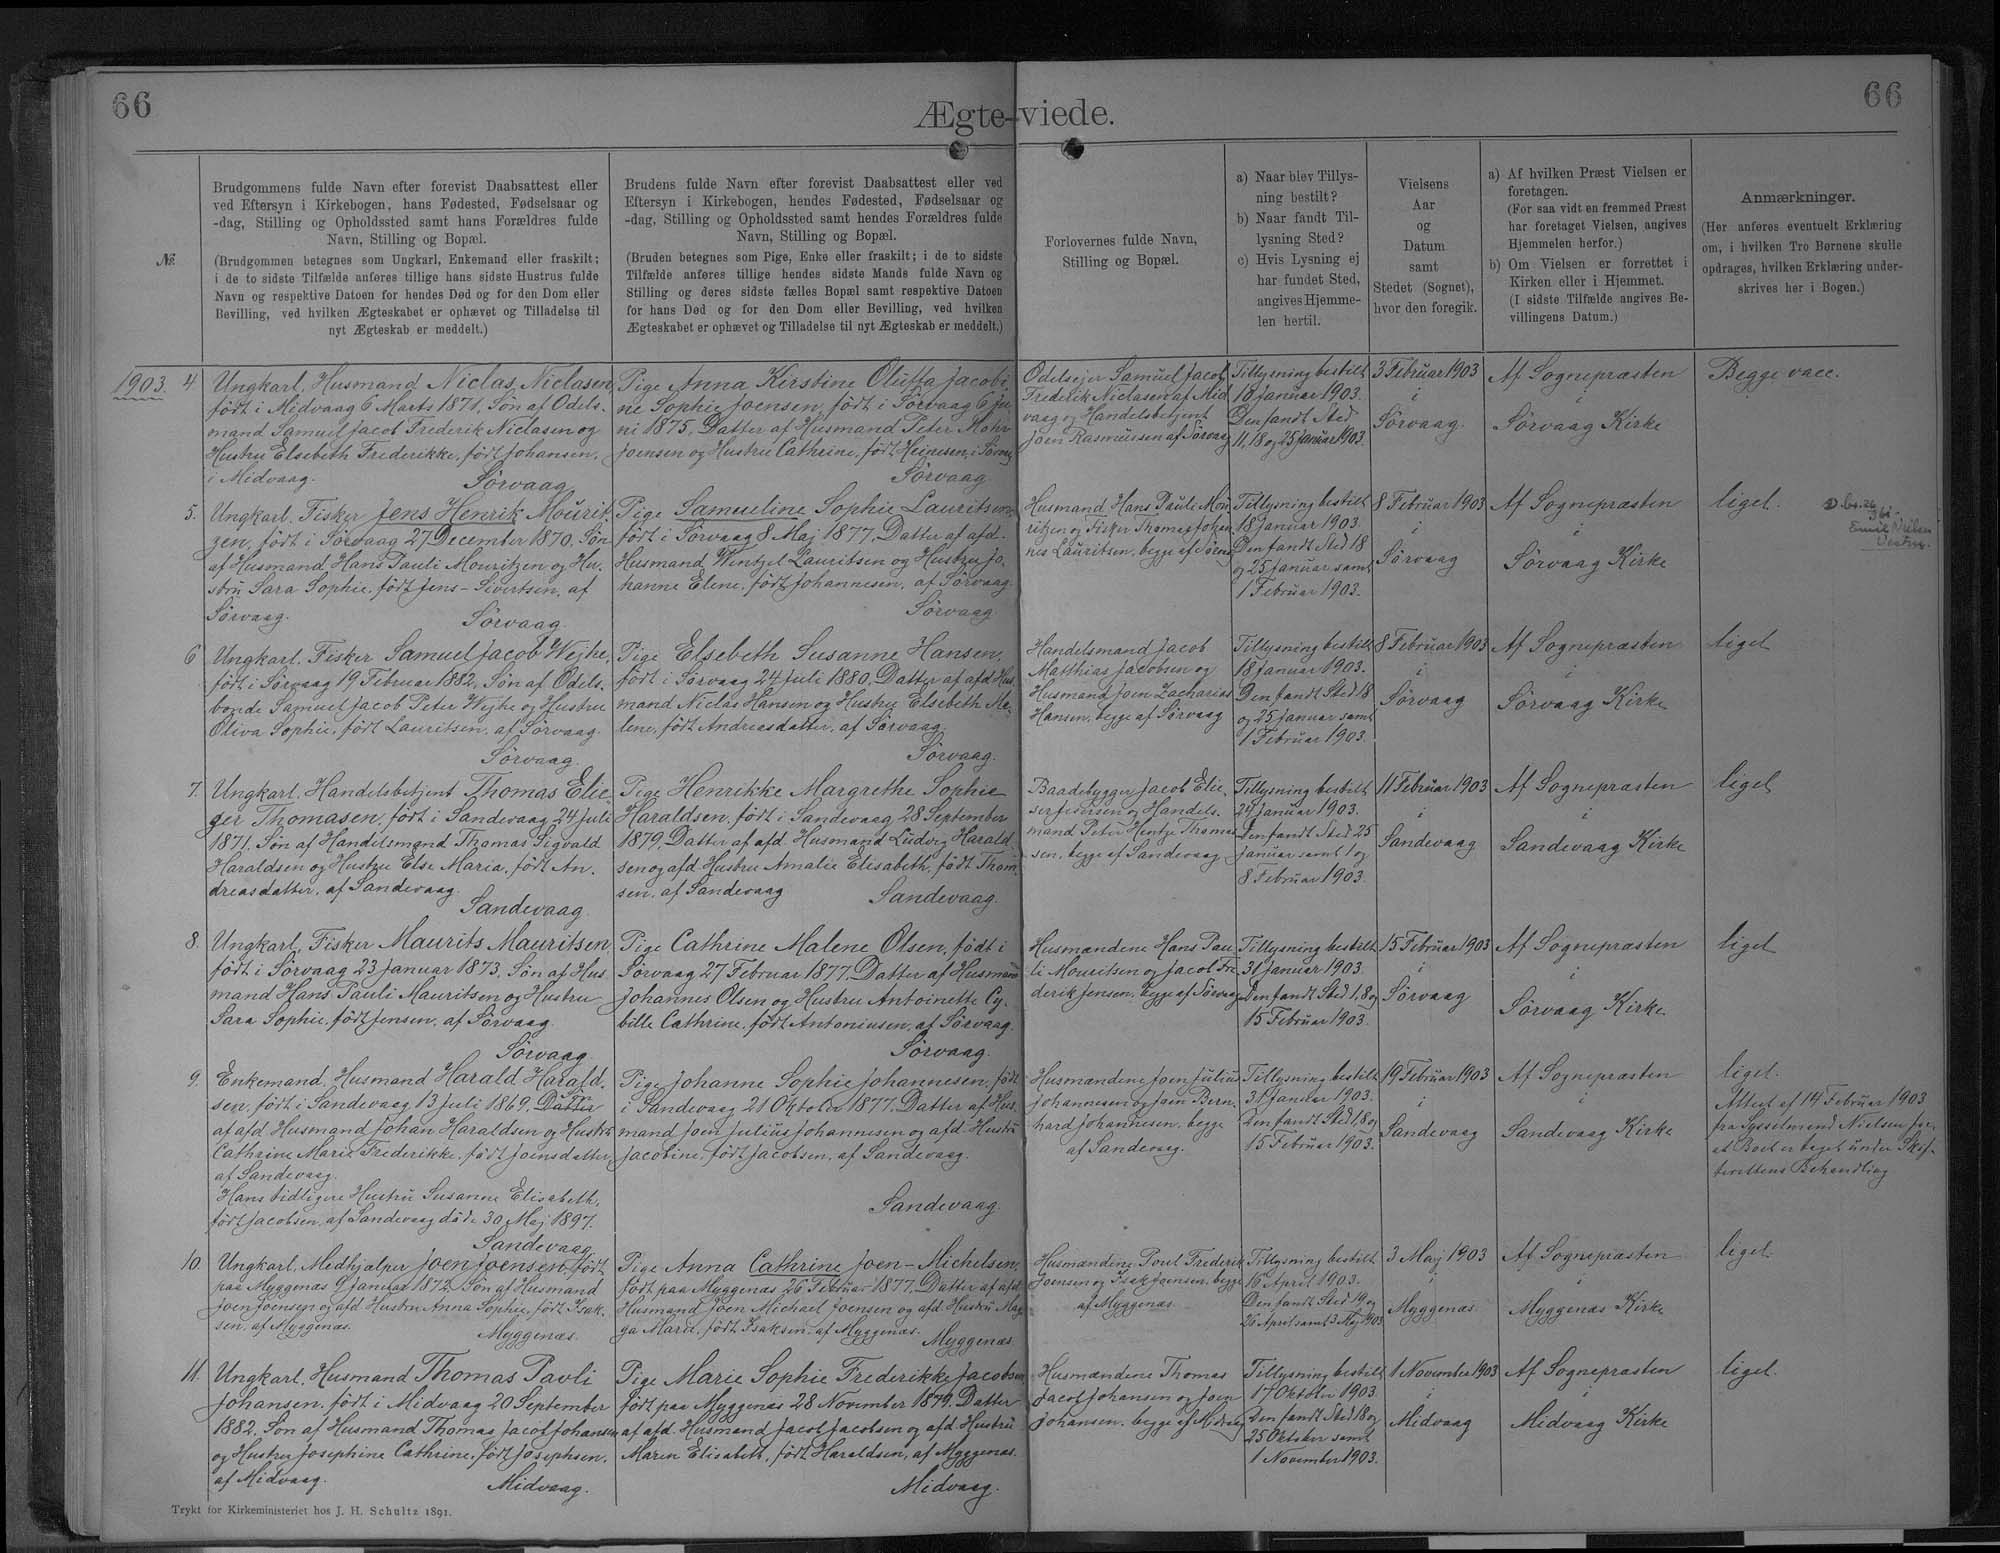 66
Ægte-viede.
66
№
Brudgommens fulde Navn efter forevist Daabsattest eller
ved Eftersyn i Kirkebogen, hans Fødested, Fødselsaar og
-dag, Stilling og Opholdssted samt hans Forældres fulde
Navn, Stilling og Bopæl.
(Brudgommen betegnes som Ungkarl, Enkemand eller fraskilt;
i de to sidste Tilfælde anføres tillige hans sidste Hustrus fulde
Navn og respektive Datoen for hendes Død og for den Dom eller
Bevilling, ved hvilken Ægteskabet er ophævet og Tilladelse til
nyt Ægteskab er meddelt.)
Brudens fulde Navn efter forevist Daabsattest eller ved
Eftersyn i Kirkebogen, hendes Fødested, Fødselsaar og
-dag, Stilling og Opholdssted samt hendes Forældres fulde
Navn, Stilling og Bopæl.
(Bruden betegnes som Pige, Enke eller fraskilt; i de to sidste
Tilfælde anføres tillige hendes sidste Mands fulde Navn og
Stilling og deres sidste fælles Bopæl samt respektive Datoen
for hans Død og for den Dom eller Bevilling, ved hvilken
Ægteskabet er ophævet og Tilladelse til nyt Ægteskab er meddelt.)
Forlovernes fulde Navn,
Stilling og Bopæl.
a) Naar blev Tillys-
ning bestilt?
b) Naar fandt Til-
lysning Sted?
c) Hvis Lysning ej
har fundet Sted,
angives Hjemme-
len hertil.
Vielsens
Aar
og
Datum
samt
Stedet (Sognet),
hvor den foregik.
a) Af hvilken Præst Vielsen er
foretagen.
(For saa vidt en fremmed Præst
har foretaget Vielsen, angives
Hjemmelen herfor.)
b) Om Vielsen er forrettet i
Kirken eller i Hjemmet.
(I sidste Tilfælde angives Be-
villingens Datum.)
Anmærkninger.
(Her anføres eventuelt Erklæring
om, i hvilken Tro Børnene skulle
opdrages, hvilken Erklæring under-
skrives her i Bogen.)
1903. 4.
Ungkarl, Husmand Niclas Niclasen,
født i Midvaag 6 Marts 1871, Søn af Odels-
mand Samuel Jacob Frederik Niclasen og
Hustru Elsebeth Frederikke, født Johansen,
i Midvaag.
Sörvaag
Pige Anna Kirstine Olutfa Jacobi-
ne Sophie Joensen, født i Sörvaag 6 Ju-
ni 1875, Datter af Husmand Peter Mohr
Joensen og Hustru Cathrine, født Heinesen, i Sörvaag
Sörvaag
Odelsejer Samuel Jacob
Frederik Niclasen af Mid
vaag og Handelsbetjent
Joen Rasmussen af Sörvaag
Tillysning bestilt
18 Januar 1903.
Den fandt Sted
11, 18 og 25 Januar 1903.
3 Februar 1903
i
Sörvaag.
Af Sognepræsten
i
Sörvaag Kirke
Begge vacc.
5.
Ungkarl, Fisker Jens Henrik Mourit-
zen, født i Sörvaag 27 December 1870. Søn
af Husmand Hans Pauli Mouritzen og Hu-
stru Sara Sophie, født Jens-Sivertsen, af
Sörvaag.
Sörvaag.
Pige Samueline Sophie Lauritsen,
født i Sörvaag 8 Maj 1877. Datter af afd.
Husmand Wentzel Lauritsen og Hustru Jo-
hanne Elene, født Johannesen, af Sörvaag.
Sörvaag
Husmand Hans Pauli Mou
ritzen og Fisker Thomas Johan
nes Lauritsen, begge af Sörvaag
Tillysning bestilt
18 Januar 1903.
Den fandt Sted 18
og 25 Januar samt
1 Februar 1903.
8 Februar 1903
i
Sörvaag
Af Sognepræsten
i
Sörvaag Kirke
liget.
Emil Nielsen
6
Ungkarl, Fisker Samuel Jacob Wejhe,
født i Sörvaag 19 Februar 1882, Søn af Odels-
bonde Samuel Jacob Peter Wejhe og Hustru
Oliva Sophie, født Lauritsen, af Sörvaag.
Sörvaag.
Pige Elsebeth Susanne Hansen,
født i Sörvaag 24 Juli 1880, Datter af afd. Hus
mand Niclas Hansen og Hustru Elsebeth Ma-
lene, født Andreasdatter, af Sörvaag
Sörvaag.
Handelsmand Jacob
Matthias Jacobsen og
Husmand Joen Zacharias
Hansen, begge af Sörvaag
Tillysning bestilt
18 Januar 1903.
Den fandt Sted 18
og 25 Januar samt
1 Februar 1903.
8 Februar 1903
i
Sörvaag
Af Sognepræsten
i
Sörvaag Kirke
liget
7.
Ungkarl, Handelsbetjent Thomas Elie-
ser Thomasen, født i Sandevaag 24 Juli
1871, Søn af Handelsmand Thomas Sigvald
Haraldsen og Hustru Else Maria, født An-
dreasdatter, af Sandevaag.
Sandevaag.
Pige Henrikke Margrethe Sophie
Haraldsen, født i Sandevaag 28 September
1879, Datter af afd. Husmand Ludvig Harald
sen og afd. Hustru Amalie Elisabeth, født Thom
sen, af Sandevaag
Sandevaag.
Baadebygger Jacob Elie-
ser Joensen og Handels-
mand Peter Hentze Thomas
sen, begge af Sandevaag
Tillysning bestilt
24 Januar 1903.
Den fandt Sted 25
Januar samt 1 og
8 Februar 1903.
11 Februar 1903
i
Sandevaag
Af Sognepræsten
i
Sandevaag Kirke
liget
8.
Ungkarl, Fisker Maurits Mauritsen,
født i Sörvaag 23 Januar 1873, Søn af Hus-
mand Hans Pauli Mauritsen og Hustru
Sara Sophie, født Jensen, af Sörvaag.
Sörvaag.
Pige Cathrine Malene Olsen, født i
Sörvaag 27 Februar 1877, Datter af Husmand
Johannes Olsen og Hustru Antoinette Cy-
bille Cathrine, født Antoniusen, af Sörvaag.
Sörvaag.
Husmændene Hans Pau
li Mouritsen og Jacob Fre
derik Jensen, begge af Sörvaag
Tillysning bestilt
31 Januar 1903.
Den fandt Sted 1, 8 og
15 Februar 1903.
15 Februar 1903
i
Sörvaag
Af Sognepræsten
i
Sörvaag Kirke
liget
9.
Enkemand, Husmand Harald Harald-
sen, født i Sandevaag 13 Juli 1869, Datter Søn
af afd. Husmand Johan Haraldsen og Hustru
Cathrine Marie Frederikke, født Joensdatter,
af Sandevaag.
Hans tidligere Hustru Susanne Elisabeth,
født Jacobsen, af Sandevaag døde 30 Maj 1897.
Sandevaag
Pige Johanne Sophie Johannesen, født
i Sandevaag 21 Oktober 1877. Datter af Hus-
mand Joen Julius Johannesen og afd. Hustru
Jacobine, født Jacobsen, af Sandevaag.
Sandevaag.
Husmændene Joen Julius
Johannesen og Joen Bern-
hard Johannesen, begge
af Sandevaag.
Tillysning bestilt
31 Januar 1903.
Den fandt Sted 1, 8 og
15 Februar 1903.
19 Februar 1903
i
Sandevaag
Af Sognepræsten
i
Sandevaag Kirke
liget.
Attest af 14 Februar 1903
fra Sysselmand Nielsen for,
at Boet er taget under Skif-
terettens Behandling
10.
Ungkarl, Medhjælper Joen Joensen, født
paa Myggenæs 9 Januar 1872, Søn af Husmand
Joen Joensen og afd. Hustru Anna Sophie, født Isak-
sen, af Myggenæs.
Myggenæs.
Pige Anna Cathrine Joen-Michelsen,
født paa Myggenæs 26 Februar 1877. Datter af afd.
Husmand Joen Michael Joensen og afd. Hustru Mag
ga Maria, født Isaksen, af Myggenæs.
Myggenæs
Husmændene Poul Frederik
Joensen og Isak Joensen, begge
af Myggenæs.
Tillysning bestilt
16 April 1903.
Den fandt Sted 19 og
26 April samt 3 Maj 1903
3 Maj 1903
i
Myggenæs.
Af Sognepræsten
i
Myggenæs Kirke
liget.
11.
Ungkarl, Husmand Thomas Pavli
Johansen, født i Midvaag 20 September
1882, Søn af Husmand Thomas Jacob Johansen
og Hustru Josephine Cathrine, født Josephsen,
af Midvaag.
Midvaag.
Pige Marie Sophie Frederikke Jacobsen
født paa Myggenæs 28 November 1879. Datter
af afd. Husmand Jacob Jacobsen og afd. Hustru
Maren Elisabeth, født Haraldsen, af Myggenæs.
Midvaag.
Husmændene Thomas
Jacob Johansen og Joen
Johansen, begge af Midvaag
Tillysning bestilt
17 Oktober 1903.
Den fandt Sted 18 og
25 Oktober samt
1 November 1903.
1 November 1903
i
Midvaag
Af Sognepræsten
i
Midvaag Kirke
liget.
Trykt for Kirkeministeriet hos J. H. Schultz 1891.